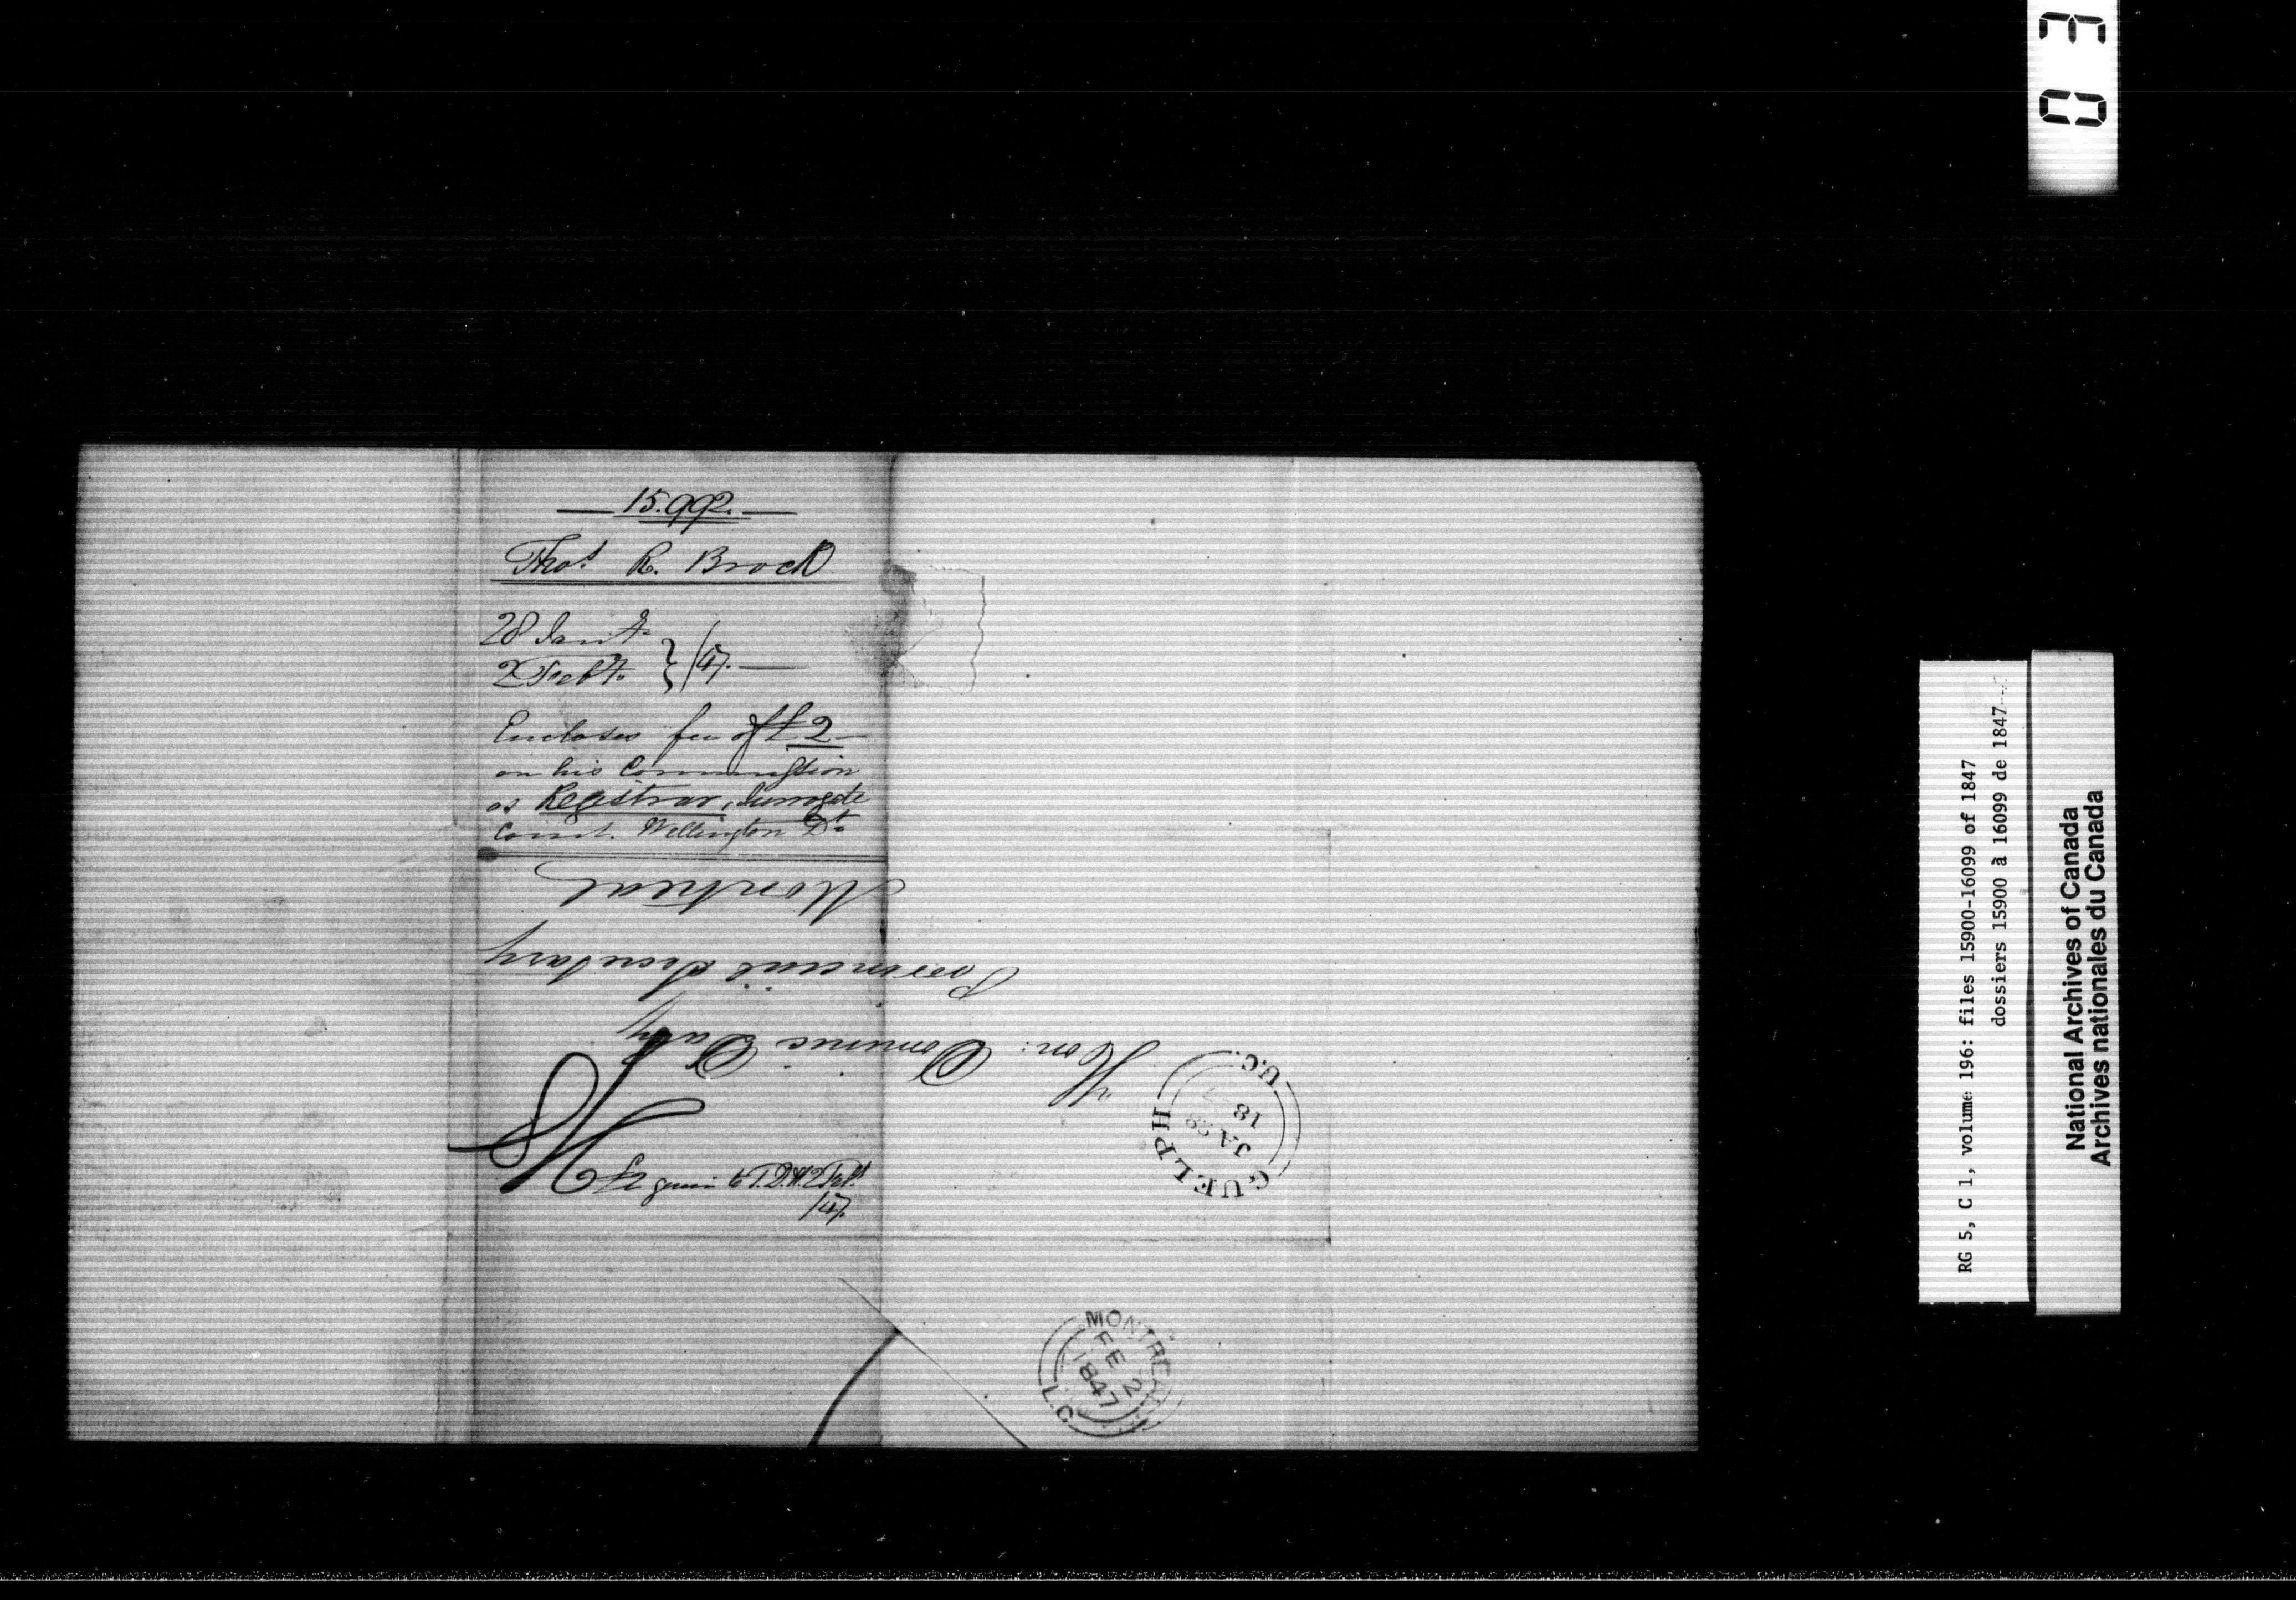 15.992.
Thos R. Brock
28 Jany
2 Feby } /47.
Encloses fee of £2
on his Commission
as Registrar, Surrogate
Court. Wellington Dt
Hon: Dominic Daly
Provincial Secretary
Montreal
£2 given to T.D.H. 2 Feby
/47.
GUELPH
JA 28
18
U.C.
MONTREAL
FE 2
1847
L.C.
03
RG 5, C 1, volume 196: files 15900-16099 of 1847
dossiers 15900 à 16099 de 1847
National Archives of Canada
Archives nationales du Canada